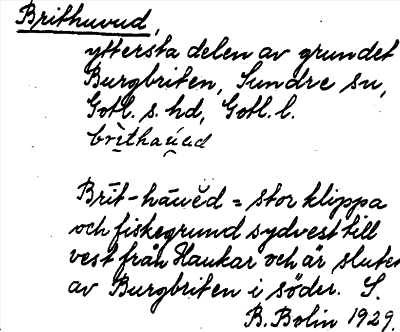 Brithuvud,
yttersta delen av grundet
Burgbriten, Sundre sn,
Gotl. s. hd, Gotl. l.
brìthau̯ud
Brīt-hāu̯ĕd = stor klippa
och fiskegrund sydvest till
vest från Haukar och är sluten
av Burgbriten i söder. S.
B. Bolin 1929.